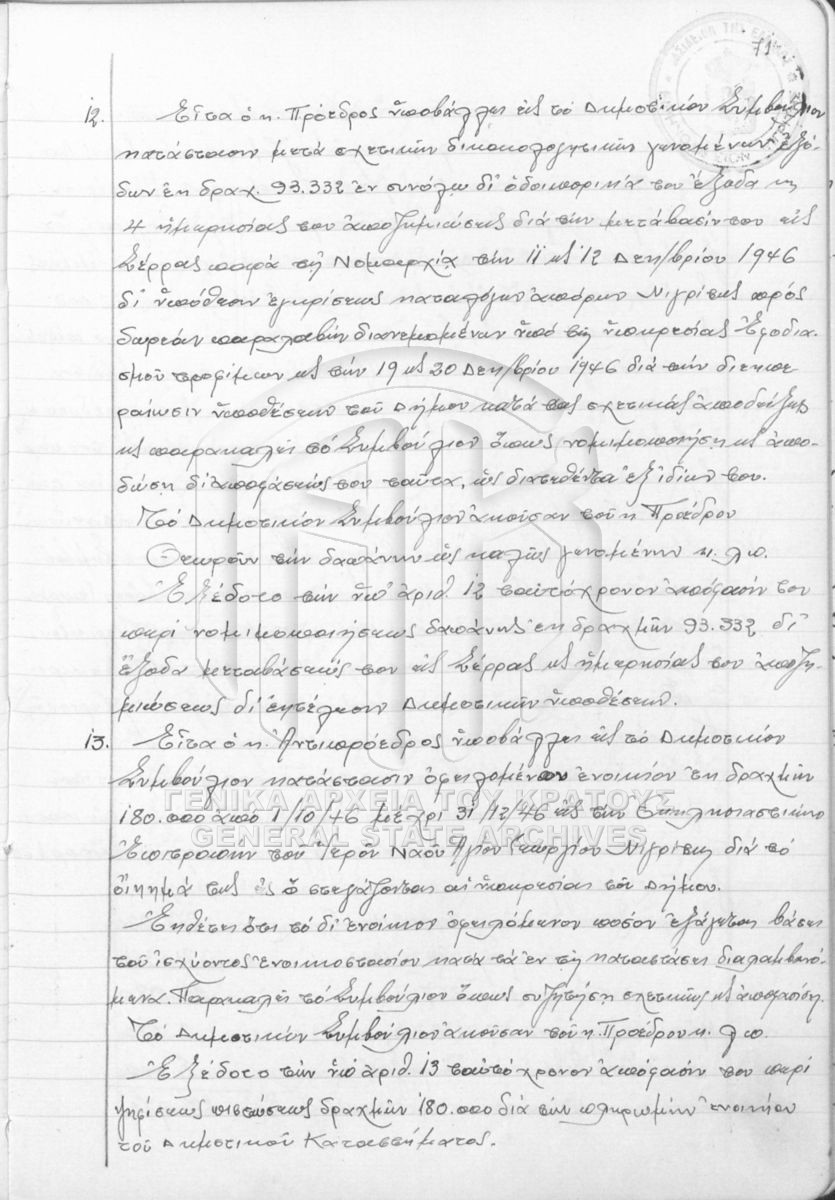 71
12. Εἶτα ὁ κ. Πρόεδρος ὑποβάλλει εἰς τὸ Δημοτικόν Συμβούλιον
κατάστασιν μετά σχετικῶν δικαιολογητικῶν γενομένων ἐξό-
δων ἐκ δραχ. 93.332 ἐν συνόλῳ δι' ὁδοιπορικά του ἔξοδα κς
4 ἡμερησίας του ἀποζημιώσεις διά τήν μετάβασίν του εἰς
Σέρρας παρά τῇ Νομαρχίᾳ τήν 11 κς 12 Δεκ/βρίου 1946
δι' ὑπόθεσιν ἐγκρίσεως καταλόγων ἀπόρων Νιγρίτης πρός
δωρεάν παραλαβήν διανεμομένων ὑπό τῆς ὑπηρεσίας Ἐφοδια-
σμοῦ τροφίμων κς τήν 19 κς 20 Δεκ/βρίου 1946 διά τήν διεκπε-
ραίωσιν ὑποθέσεων τοῦ Δήμου κατά τάς σχετικάς ἀποδείξεις
κς παρακαλεῖ τό Συμβούλιον ὅπως νομιμοποιήση κς ἀπο-
δώση δι' ἀποφάσεώς του ταῦτα, ὡς διατεθέντα ἐξ ἰδίων του.
Τό Δημοτικόν Συμβούλιον ἀκοῦσαν τοῦ κ Προέδρου
Θεωροῦν τήν δαπάνην ὡς καλῶς γενομένην κ. λ π.
Ἐξέδοτο τήν ὑπ' ἀριθ. 12 ταὐτόχρονον ἀπόφασίν του
περί νομιμοποιήσεως δαπάνης ἐκ δραχμῶν 93.332 δι'
ἔξοδα μεταβάσεώς του εἰς Σέρρας κς ἡμερησίας του ἀποζη-
μιώσεως δι' ἐκτέλεσιν Δημοτικῶν ὑποθέσεων.
13. Εἶτα ὁ κ. Ἀντιπρόεδρος ὑποβάλλει εἰς τό Δημοτικόν
Συμβούλιον κατάστασιν ὀφειλομένων ἐνοικίων ἐκ δραχμῶν
180.000 ἀπό 1/10/46 μέχρι 31/12/46 εἰς τήν Ἐκκλησιαστικήν
Ἐπιτροπήν τοῦ Ἱεροῦ Ναοῦ Ἁγίου Γεωργίου Νιγρίτης διά τό
οἴκημά της εἰς ὅ στεγάζονται αἱ ὑπηρεσίαι τοῦ Δήμου.
Ἐκθέτει ὅτι τό δι' ἐνοίκιον ὀφειλόμενον ποσόν ἐξάγεται βάσει
τοῦ ἰσχύοντος ἐνοικιοστασίου κατά τά ἐν τῇ καταστάσει διαλαμβανό-
μενα. Παρακαλεῖ τό Συμβούλιον ὅπως συζητήση σχετικῶς κς ἀποφασίση.
Τό Δημοτικόν Συμβούλιον ἀκοῦσαν τοῦ κ. Προέδρου κ. λ π.
Ἐξέδοτο τήν ὑπ' ἀριθ. 13 ταὐτόχρονον ἀπόφασίν του περί
ψηφίσεως πιστώσεως δραχμῶν 180.000 διά τήν πληρωμήν ἐνοικίου
τοῦ Δημοτικοῦ Καταστήματος.
ΓΕΝΙΚΑ ΑΡΧΕΙΑ ΤΟΥ ΚΡΑΤΟΥΣ
GENERAL STATE ARCHIVES